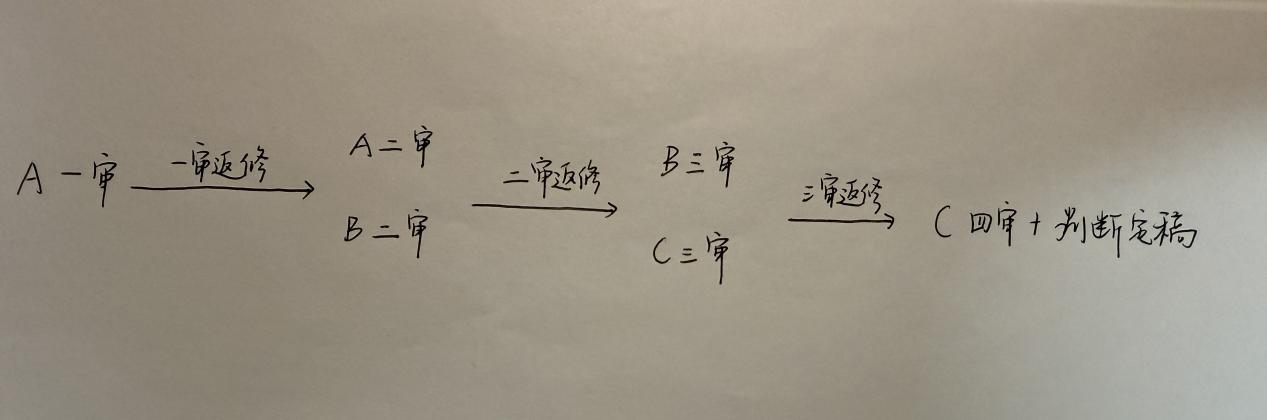 A 一审
一审返修
A 二审
B 二审
二审返修
B 三审
C 三审
三审返修
C 四审 + 判断定稿